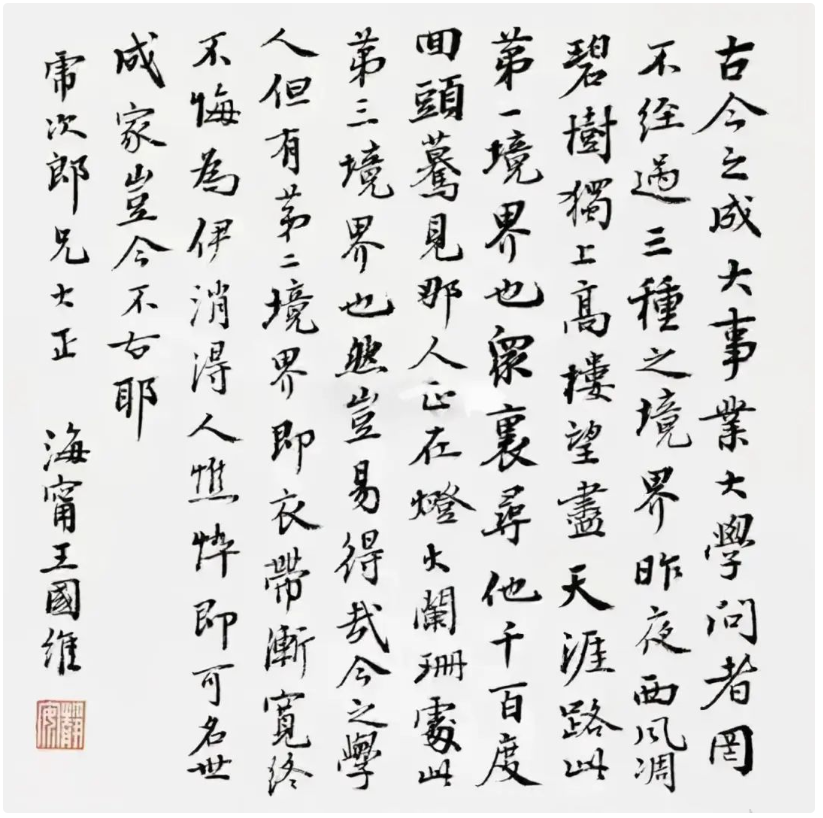 古今之成大事業大學問者罔
不经過三種之境界昨夜西风凋
碧樹獨上高樓望盡天涯路此
第一境界也眾裏尋他千百度
回頭驀見那人正在燈火闌珊處此
第三境界也然豈易得哉今之學
人但有第二境界即衣帶漸寬终
不悔為伊消得人憔悴即可名世
成家豈今不右耶
乕次郎兄大正 海甯王國維
靜安